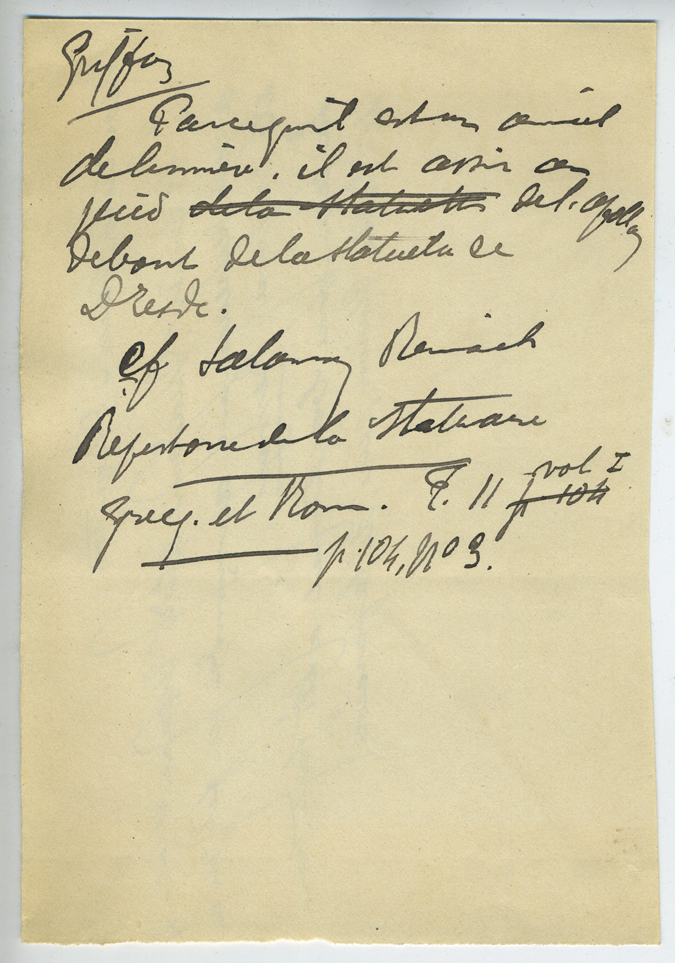 Griffon
Parcequ'il est un animal
de lumière, il est assis au
pied de la statuette de l'apollon
debout de la statuette de
Dresde.
cf Salomon Reinach
Repertoire de la statuaire
grecq. et Rom. T. II p 104 vol I
p. 104, no 3.